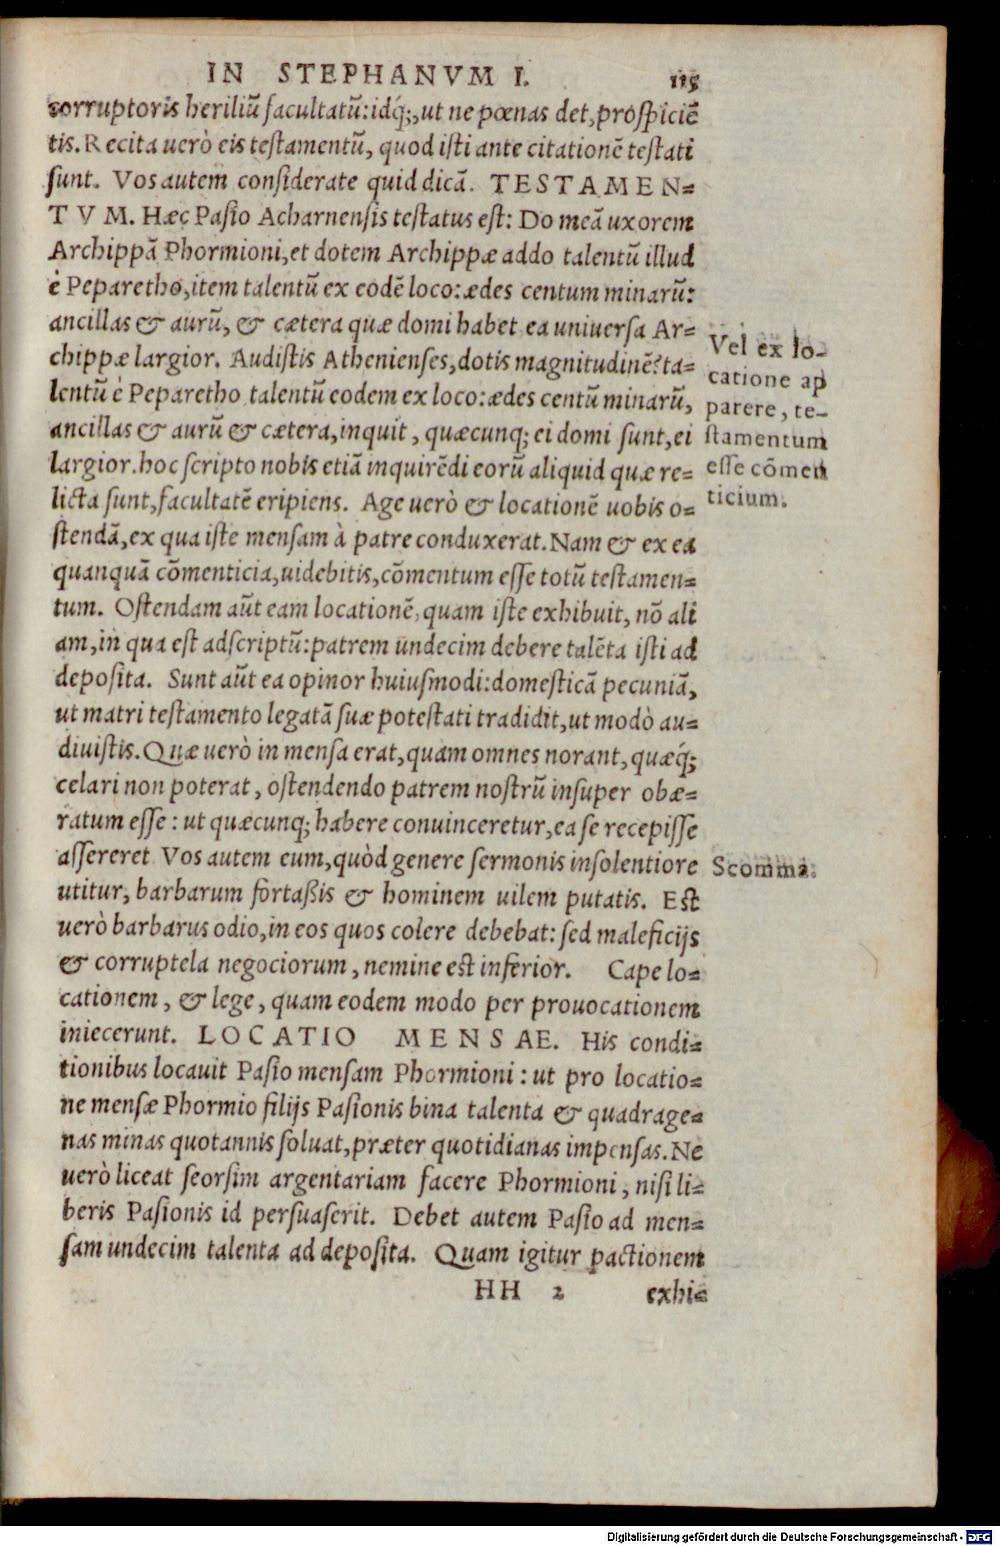 IN STEPHANVM I. 115
corruptoris heriliũ facultatũ: idq́;, ut ne pœnas det, prospiciẽ
tis. Recita uerò eis testamentũ, quod isti ante citationẽ testati
sunt. Vos autem considerate quid dicã. TESTAMEN=
TVM. Hæc Pasio Acharnensis testatus est: Do meã uxorem
Archippã Phormioni, et dotem Archippæ addo talentũ illud
è Peparetho, item talentũ ex eodẽ loco: ædes centum minarũ:
ancillas & aurũ, & cætera quæ domi habet ea uniuersa Ar=
chippæ largior. Audistis Athenienses, dotis magnitudinẽ? ta=
lentũ è Peparetho talentũ eodem ex loco: ædes centũ minarũ,
ancillas & aurũ & cætera, inquit, quæcunq; ei domi sunt, ei
largior. hoc scripto nobis etiã inquirẽdi eorũ aliquid quæ re=
licta sunt, facultatẽ eripiens. Age uerò & locationẽ uobis o=
stendã, ex qua iste mensam à patre conduxerat. Nam & ex ea
quanquã cõmenticia, uidebitis, cõmentum esse totũ testamen=
tum. Ostendam aũt eam locationẽ, quam iste exhibuit, nõ ali
am, in qua est adscriptũ: patrem undecim debere talẽta isti ad
deposita. Sunt aũt ea opinor huiusmodi: domesticã pecuniã,
ut matri testamento legatã suæ potestati tradidit, ut modò au=
diuistis. Quæ uerò in mensa erat, quam omnes norant, quæq́;
celari non poterat, ostendendo patrem nostrũ insuper obæ=
ratum esse: ut quæcunq; habere conuinceretur, ea se recepisse
assereret Vos autem eum, quòd genere sermonis insolentiore
utitur, barbarum fortaßis & hominem uilem putatis. Est
uerò barbarus odio, in eos quos colere debebat: sed maleficijs
& corruptela negociorum, nemine est inferior. Cape lo=
cationem, & lege, quam eodem modo per prouocationem
iniecerunt. LOCATIO MENSAE. His condi=
tionibus locauit Pasio mensam Phormioni: ut pro locatio=
ne mensæ Phormio filijs Pasionis bina talenta & quadrage=
nas minas quotannis soluat, præter quotidianas impensas. Ne
uerò liceat seorsim argentariam facere Phormioni, nisi li=
beris Pasionis id persuaserit. Debet autem Pasio ad men=
sam undecim talenta ad deposita. Quam igitur pactionem
HH 2 exhi=
Vel ex lo-
catione ap
parere, te-
stamentum
esse cõmen
ticium.
Scomma.
Digitalisierung gefördert durch die Deutsche Forschungsgemeinschaft - DFG